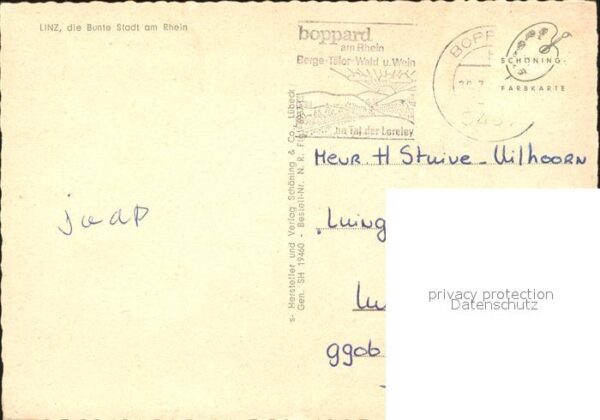 LINZ, die Bunte Stadt am Rhein
boppard
am Rhein
Berge-Täler-Wald u. Wein
im Tal der Loreley
BOPP
SCHÖNING-
FARBKARTE
s- Hersteller und Verlag Schöning & Co., Lübeck
Gen. SH 19460 - Bestell-Nr. N. R.
Mevr. H Stuive-Uilhoorn
jaap
privacy protection
Datenschutz